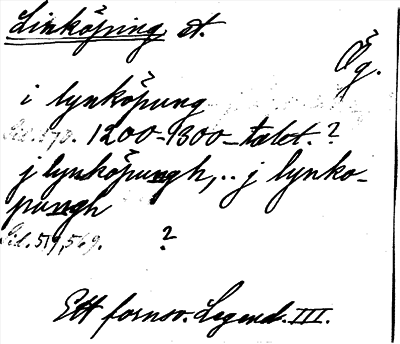 Linköping st.
Ög.
i lynköpung
Sid. 170. 1200-1300-talet.?
j lynköpungh,.. j lynko-
pungh
Sid. 519,569. ?
Ett fornsv. Legend. III.